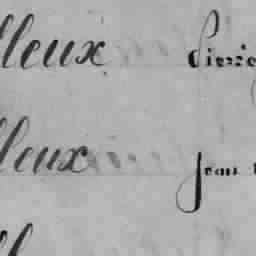 lleux Pierre
lleux Jean